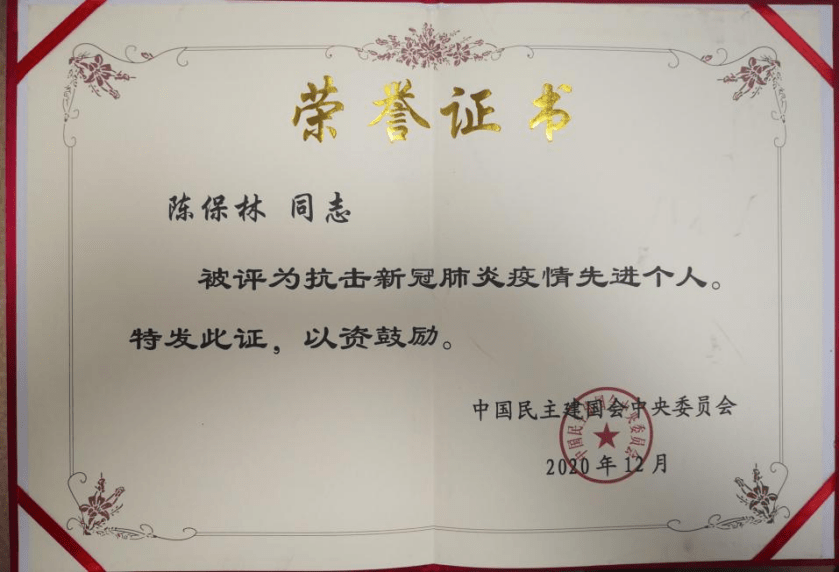 荣誉证书
陈保林 同志
被评为抗击新冠肺炎疫情先进个人。
特发此证，以资鼓励。
中国民主建国会中央委员会
2020年12月
中国民主建国会中央委员会